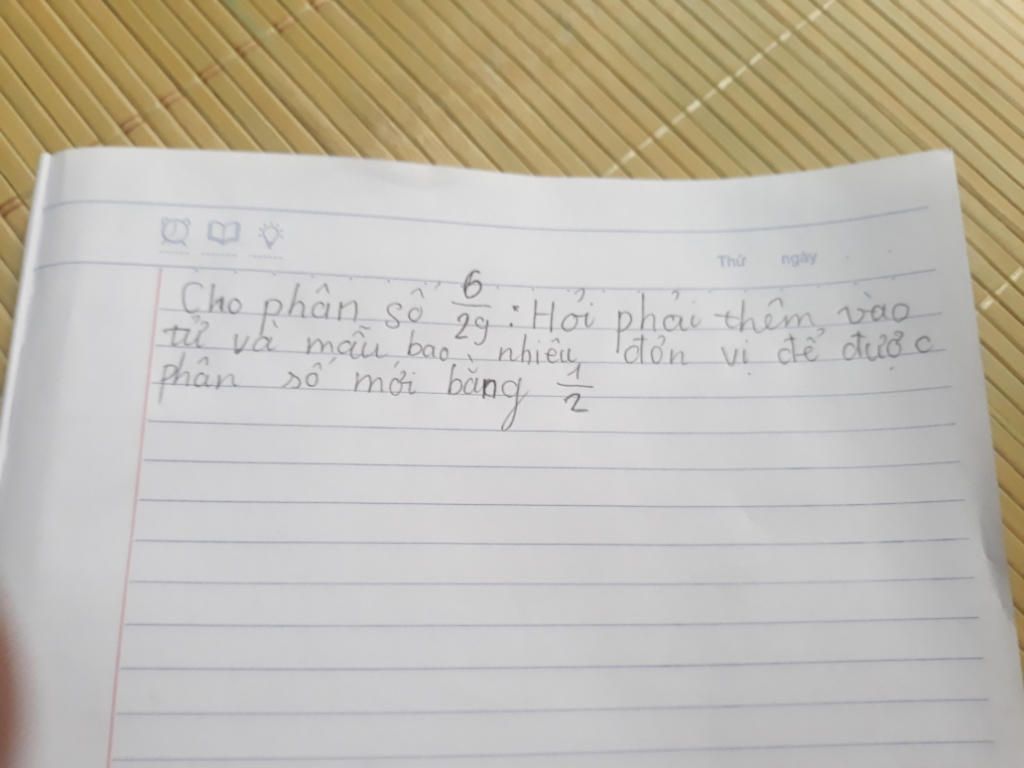 Thứ ngày
Cho phân số 6/29: Hỏi phải thêm vào
tử và mẫu bao nhiêu đơn vị để được
phân số mới bằng 1/2